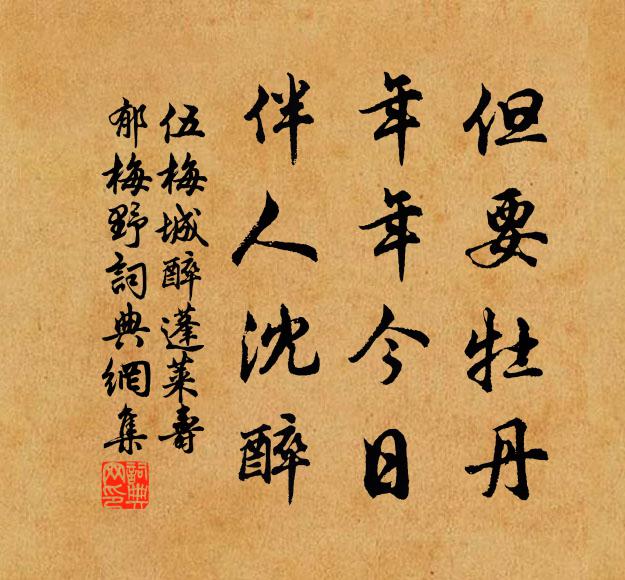 但要牡丹
年年今日
伴人沈醉
伍梅城醉蓬莱壽
郁梅野詞典網集
詞典
网印